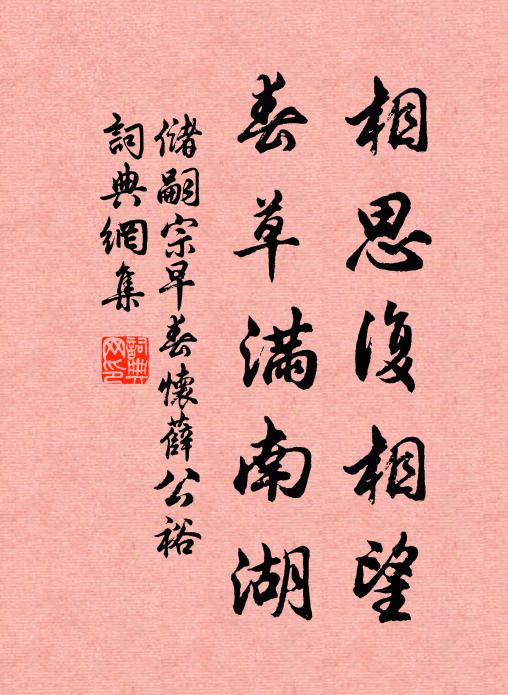 相思復相望
春草滿南湖
儲嗣宗早春懷薛公裕
詞典網集
詞典網印